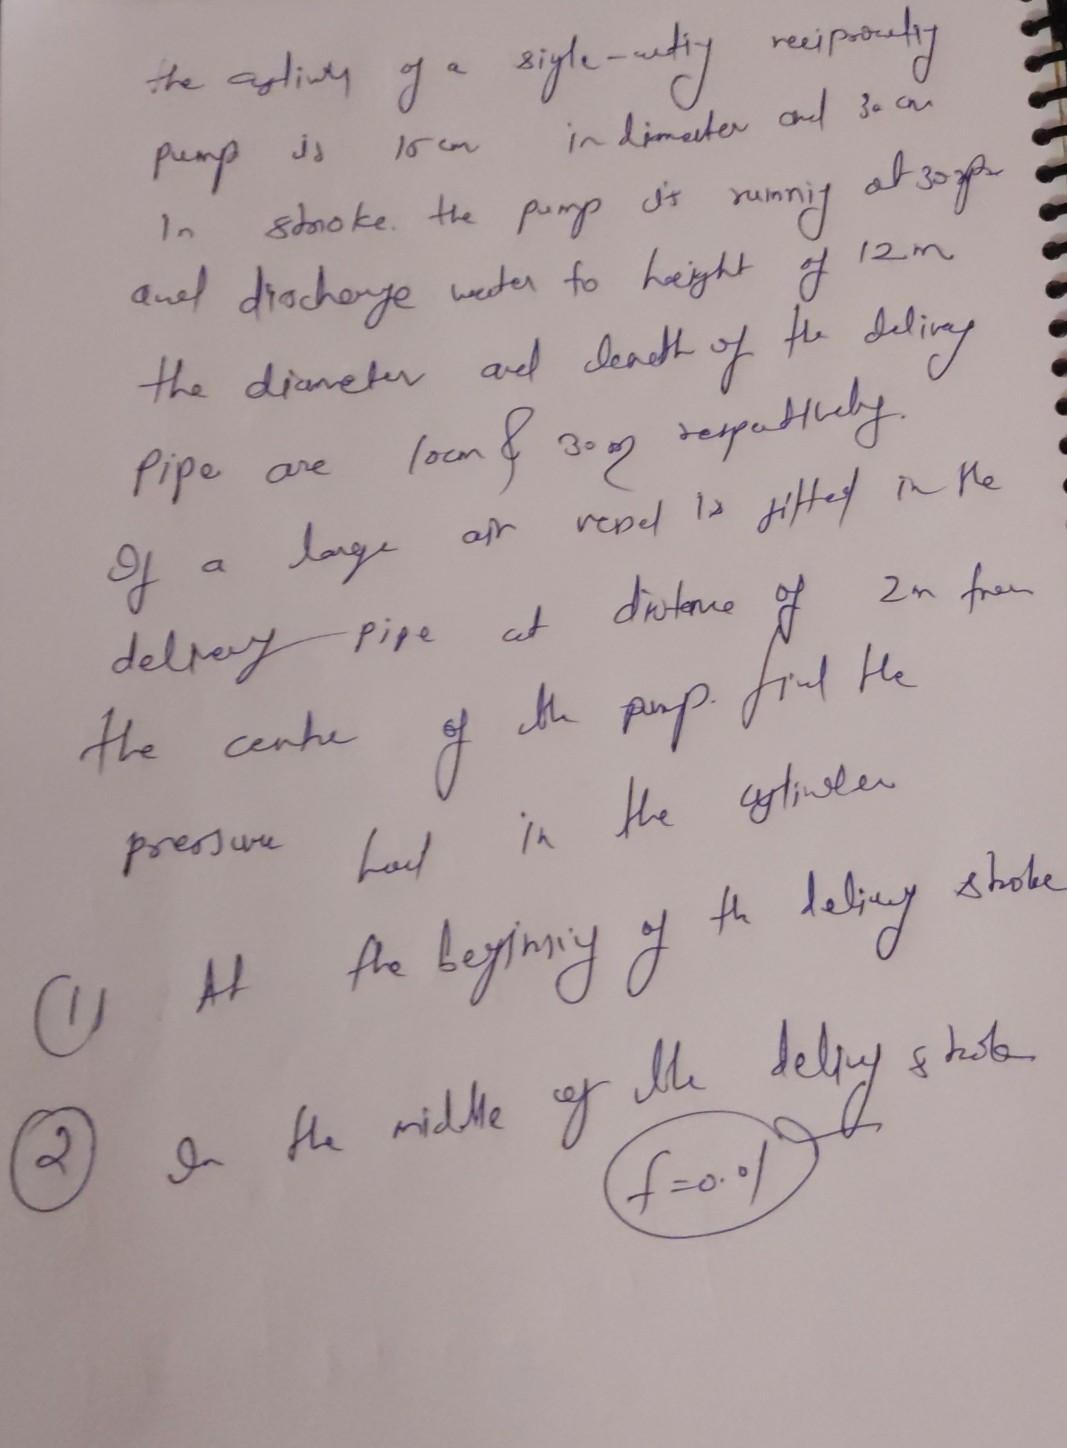 the cylindr of a single-acting reciprocating
pump is 15 cm in diameter and 30 cm
In stroke. the pump is running at 30 rpm
and discharge water to height of 12m
the diameter and length of the delivery
Pipe are 10cm & 30m respectively.
If a large air vessel is fitted in the
delivery pipe at distance of 2m from
the centre of the pump. find the
pressure head in the cylinder
(1) At the beginning of the delivery stroke
(2) In the middle of the delivery stroke
f=0.01